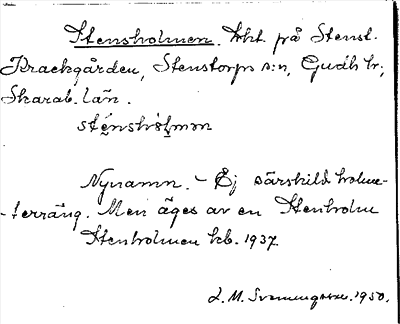 Stensholmen. Lht. på Stenst.
Krackgården, Stenstorps s:n, Gudh. hr;
Skarab. län.
sténshòlmən
Nynamn. – Ej särskild holme-
-terräng. Men äges av en Stenholm
Stenholmen kb. 1937
L. M. 1950.